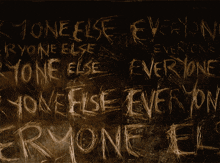 YONE ELSE EVERYON
RYONE ELSE
YONE ELSE EVERYONE
YONE ELSE EVERYON
ERYONE EL